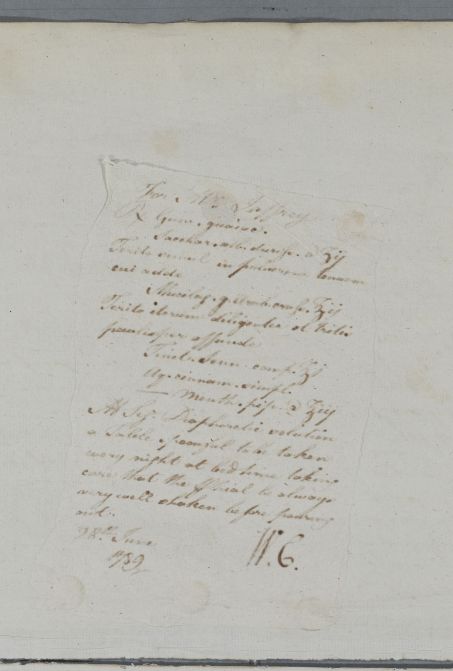 For Mr. Jeffrey
℞ Gum. guaiac.
Sacchar. alb. duriss. a ʒij
Terito simul in pulverem tenuem
cui adde
Mucilag. g. ʒij
Terito iterum diligenter et
paulatim affunde
Tinct. Senn. comp. ʒj
Aq. cinnam. simpl.
— Menth. pip. a ʒij
M. Sig. Diaphoretic solution
a table spoonful to be taken
every night at bed time taking
care that the Phial be always
very well shaken before pouring
out.
28th June
1789
W. C.